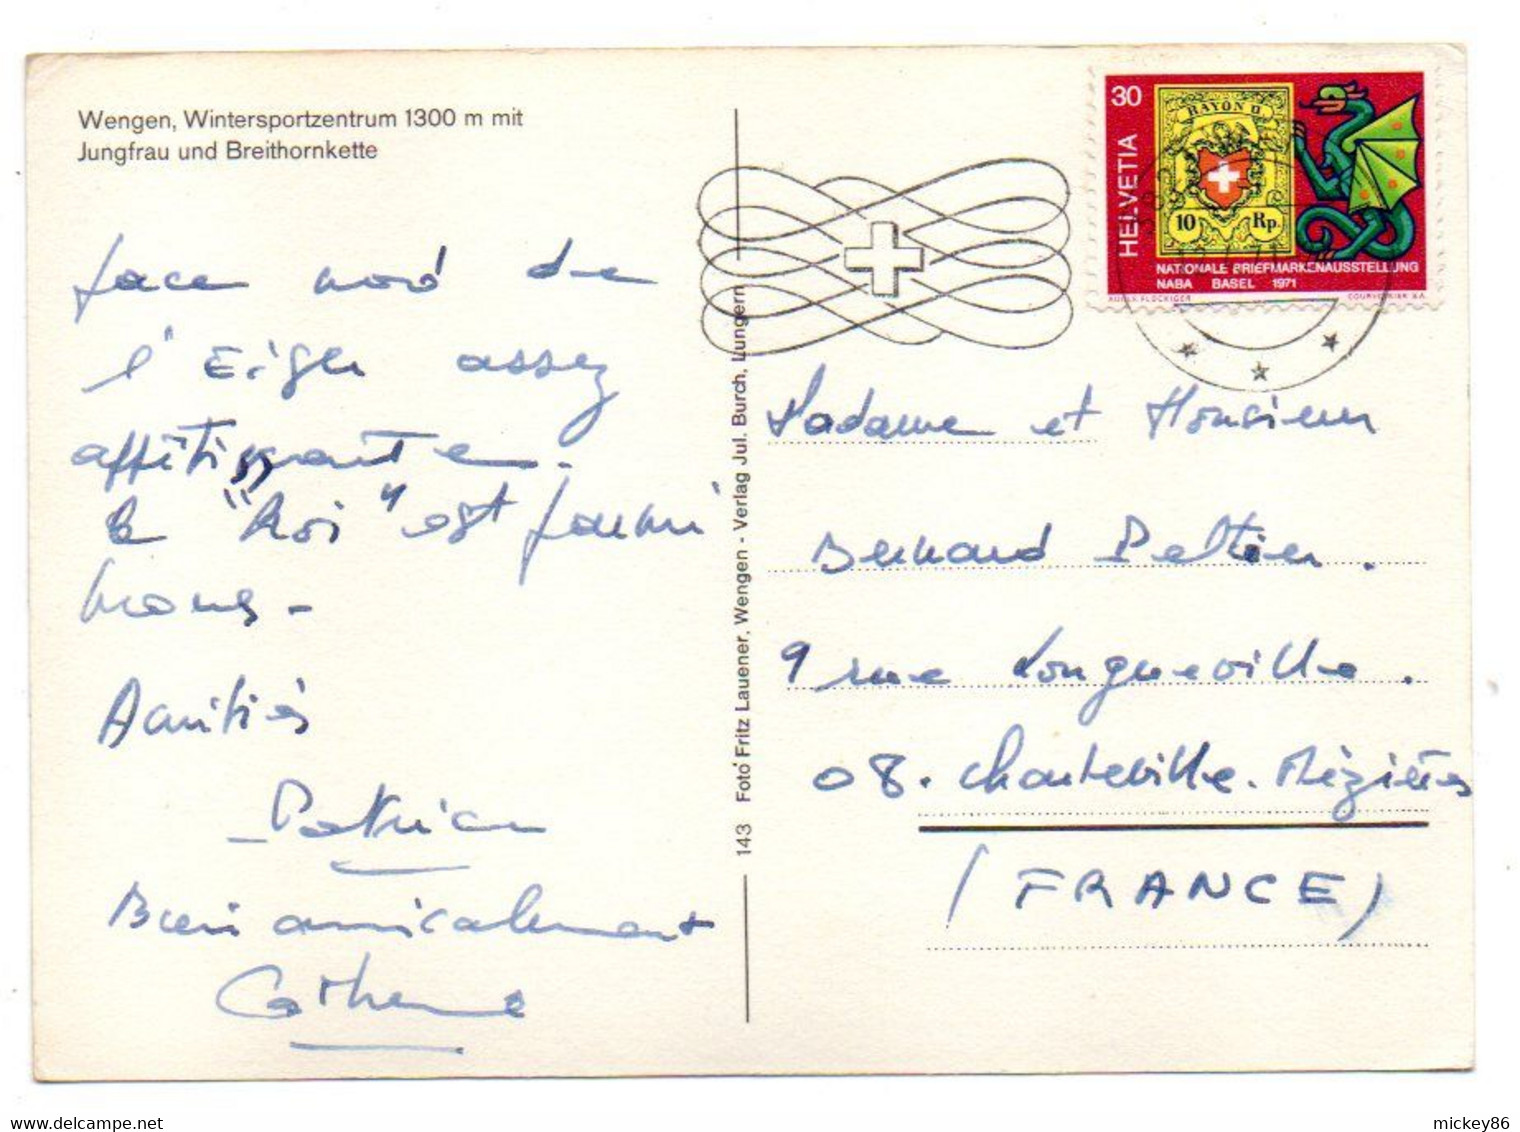 Wengen, Wintersportzentrum 1300 m mit
Jungfrau und Breithornkette
face nord de
l'Eiger assez
appétissante.
le "Roi" est parmi
nous -
Amitiés
Patrice
Bien amicalement
Catherine
143 Foto Fritz Lauener, Wengen - Verlag Jul. Burch, Lungern
30
HELVETIA
RAYON II
10 Rp.
NATIONALE BRIEFMARKENAUSSTELLUNG
NABA BASEL 1971
COURVOISIER S.A.
Madame et Monsieur
Bernard Peltier.
9 rue Longueville.
08. Charleville-Mézières
(FRANCE)
mickey86